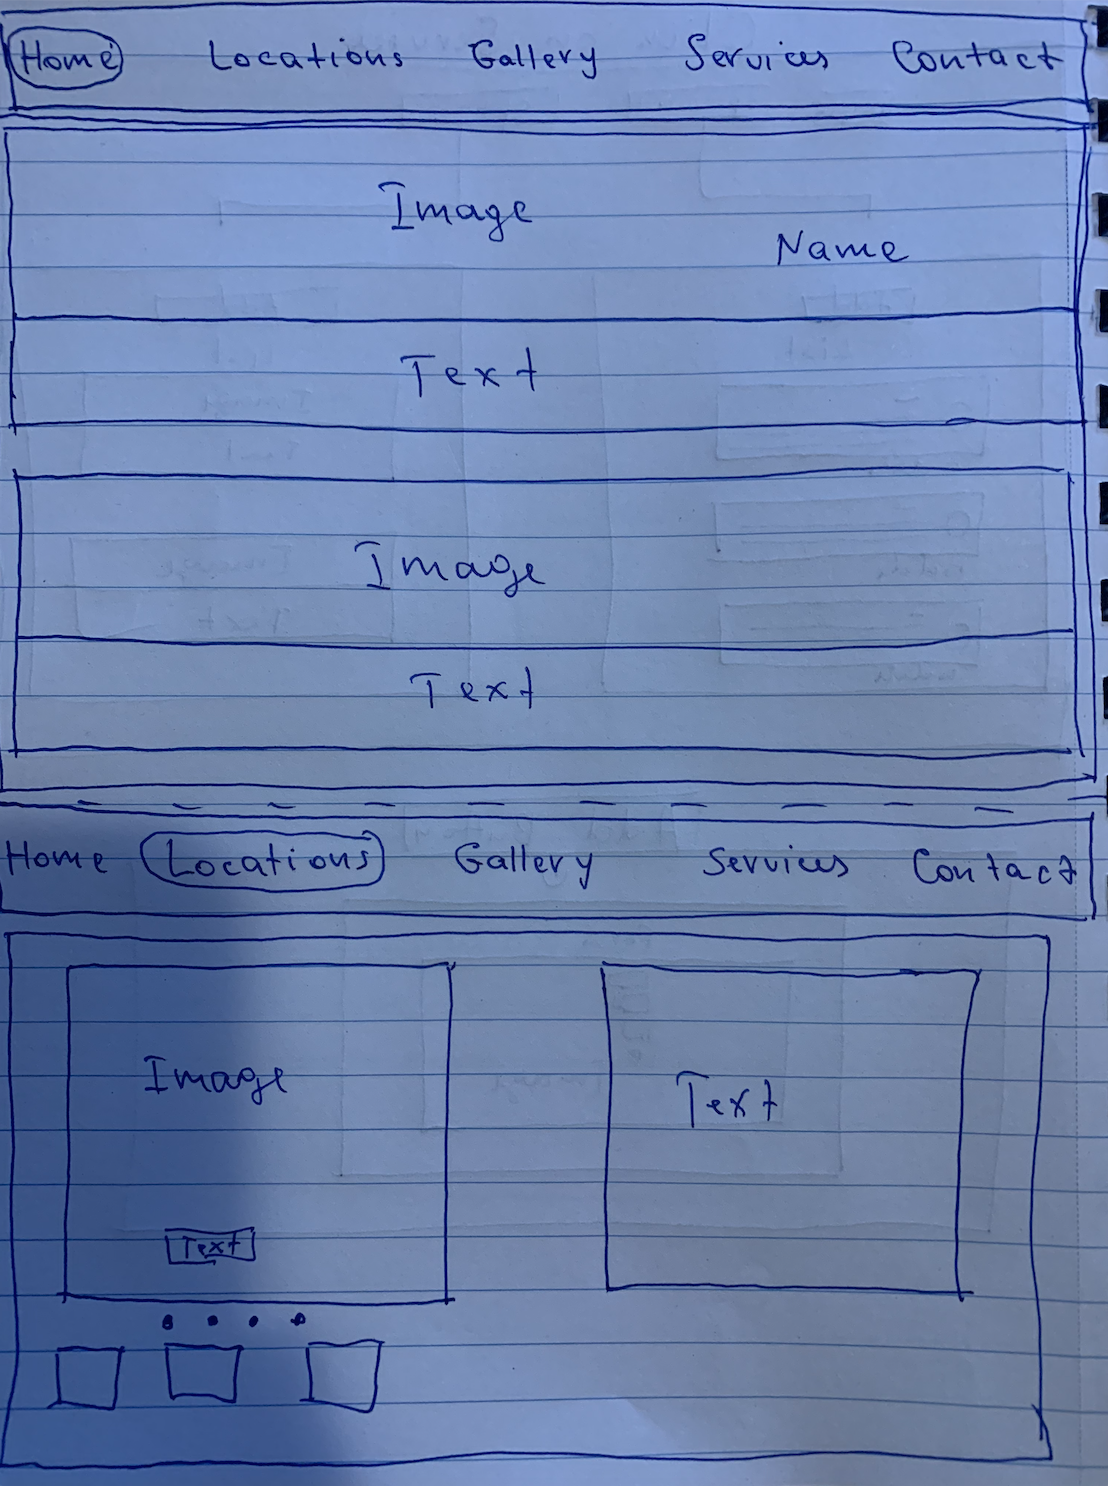 Home Locations Gallery Services Contact
Image
Name
Text
Image
Text
Home Locations Gallery Services Contact
Image
Text
Text